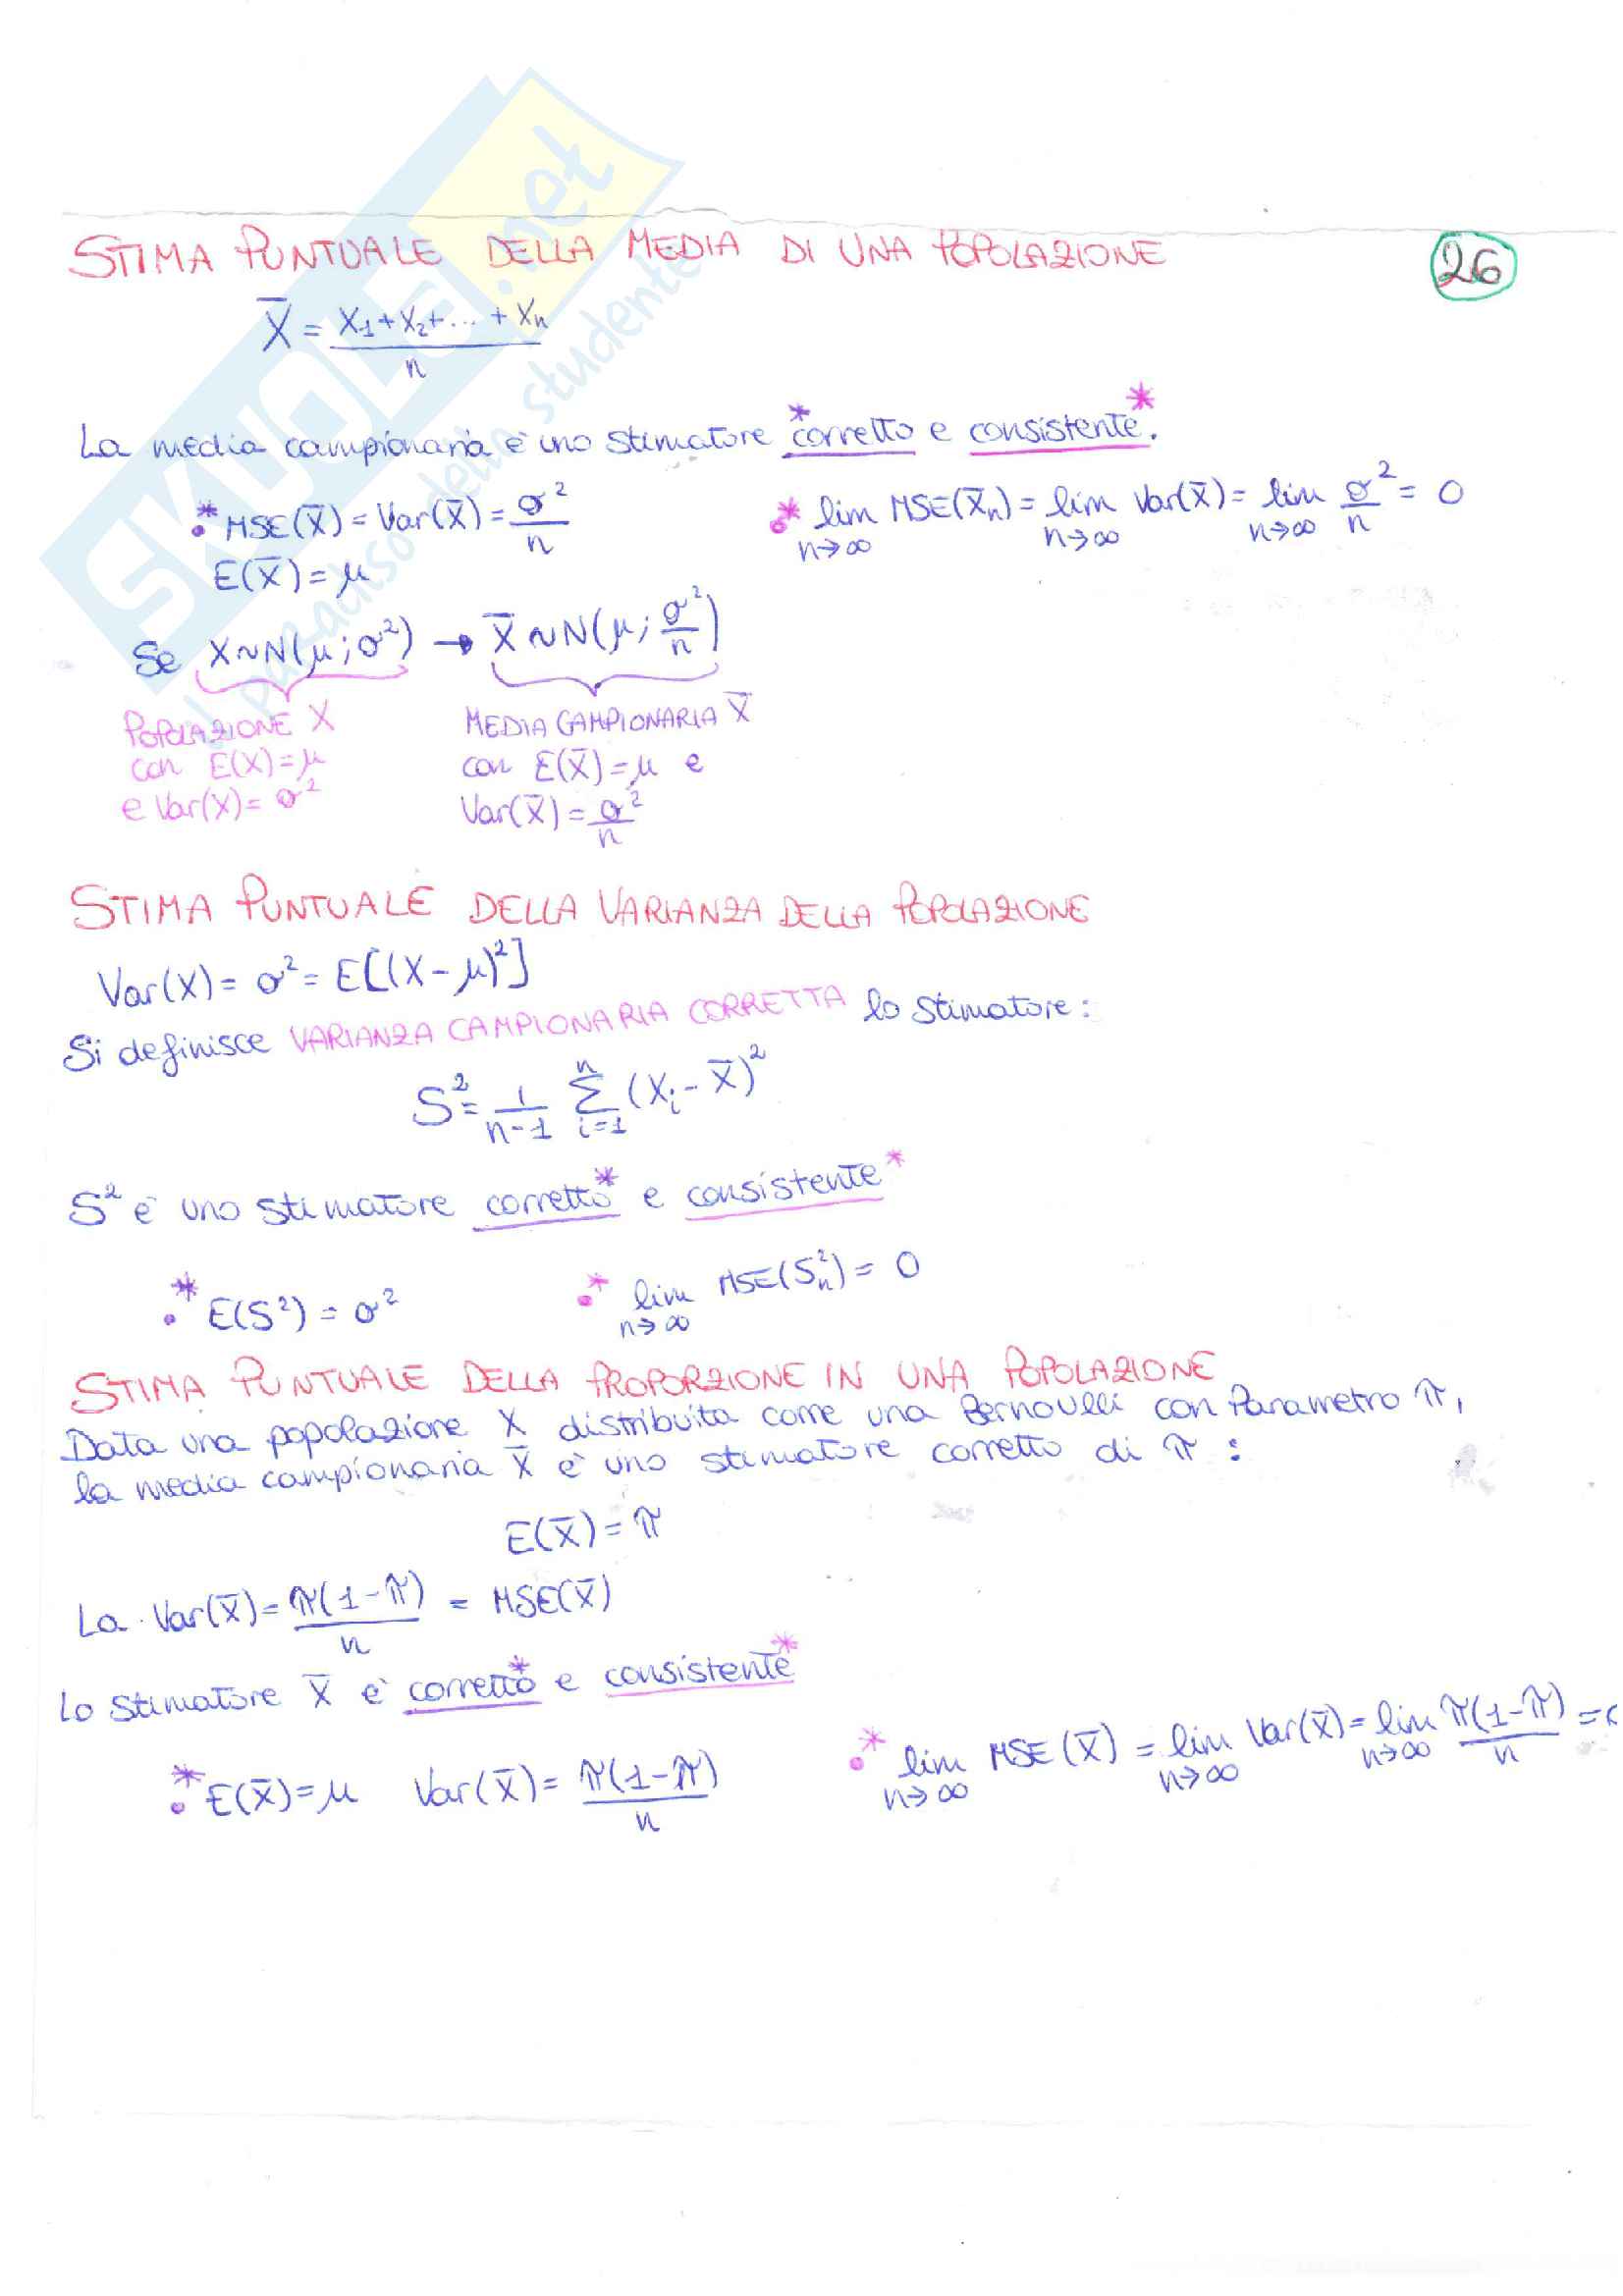 STIMA PUNTUALE DELLA MEDIA DI UNA POPOLAZIONE
26
X̄ = (X₁+X₂+...+Xₙ)/n
La media campionaria è uno stimatore corretto* e consistente*.
* MSE(X̄) = Var(X̄) = σ²/n
* lim n→∞ MSE(X̄ₙ) = lim n→∞ Var(X̄) = lim n→∞ σ²/n = 0
E(X̄) = μ
Se X~N(μ;σ²) → X̄~N(μ;σ²/n)
POPOLAZIONE X
con E(X)=μ
e Var(X)=σ²
MEDIA CAMPIONARIA X̄
con E(X̄)=μ e
Var(X̄)=σ²/n
STIMA PUNTUALE DELLA VARIANZA DELLA POPOLAZIONE
Var(X) = σ² = E[(X-μ)²]
Si definisce VARIANZA CAMPIONARIA CORRETTA lo stimatore:
S² = 1/(n-1) Σ i=1 n (Xᵢ-X̄)²
S² è uno stimatore corretto* e consistente*
* E(S²) = σ²
* lim n→∞ MSE(Sₙ²) = 0
STIMA PUNTUALE DELLA PROPORZIONE IN UNA POPOLAZIONE
Data una popolazione X distribuita come una Bernoulli con Parametro π,
la media campionaria X̄ è uno stimatore corretto di π:
E(X̄) = π
La Var(X̄) = π(1-π)/n = MSE(X̄)
Lo stimatore X̄ è corretto* e consistente*
* E(X̄)=μ Var(X̄) = π(1-π)/n
* lim n→∞ MSE(X̄) = lim n→∞ Var(X̄) = lim n→∞ π(1-π)/n =
SKUOLA.net
il paradiso dello studente